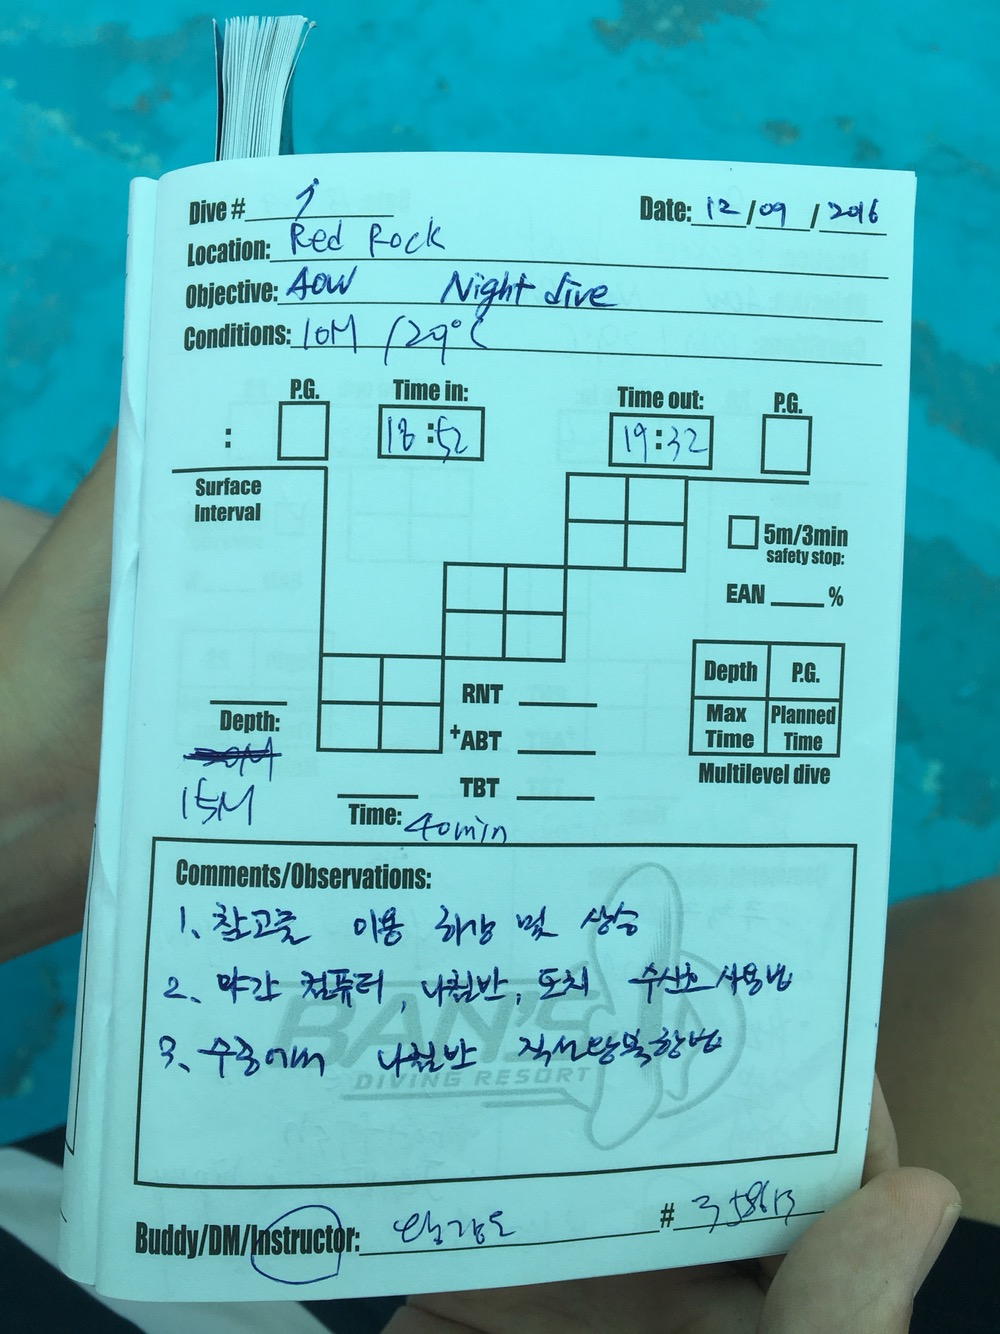 Dive #
Date: 12/09/2016
Location: Red Rock
Objective: AOW Night dive
Conditions: 10M /29°C
P.G. Time in: Time out: P.G.
: 18:52 19:32
Surface
Interval
5m/3min
safety stop:
EAN %
Depth P.G.
RNT
Max Time Planned Time
Depth:
+ABT
Multilevel dive
TBT
15M
Time: 40min
Comments/Observations:
1. 참고줄 이용 하강 및 상승
2. 야간 컴퓨터, 나침반, 도치 수신호 사용법
3. 수중에서 나침반 직선왕복항법
BAN'S
DIVING RESORT
Buddy/DM/Instructor: #